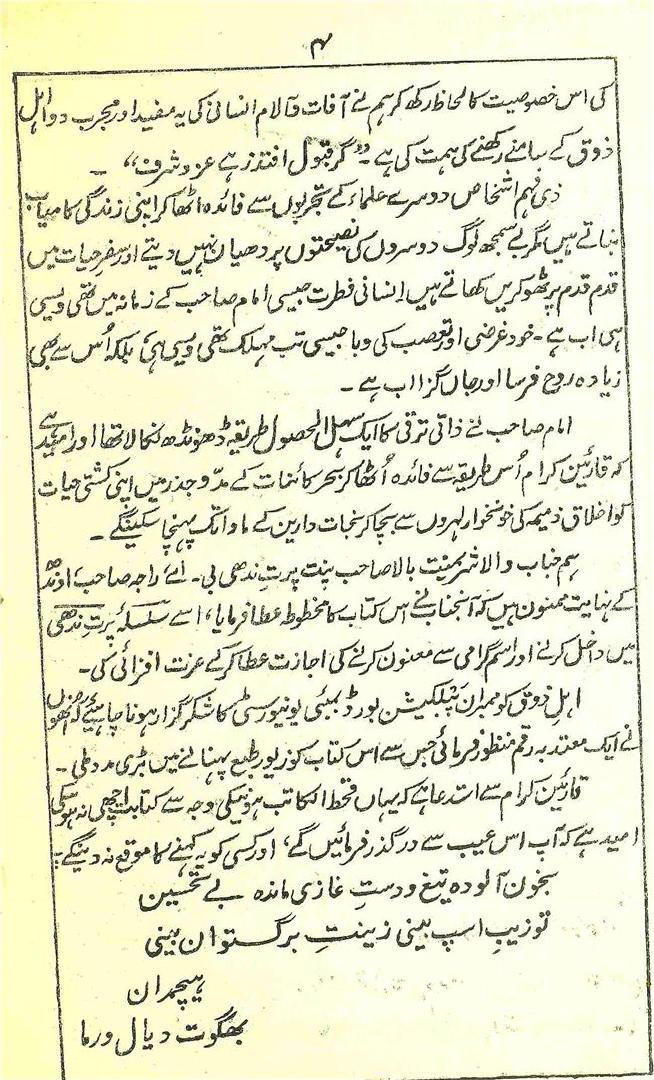 ۴
کی اس خصوصیت کا لحاظ رکھ کر ہم نے آفات و آلام انسانی کی یہ مفید اور مجرب دوا اہل
ذوق کے سامنے رکھنے کی ہمت کی ہے۔ "گر قبول افتد ز ہے عز و شرف" ۔
ذی فہم اشخاص دوسرے علماء کے تجربوں سے فائدہ اٹھا کر اپنی زندگی کامیاب
بناتے ہیں مگر بے سمجھ لوگ دوسروں کی نصیحتوں پر دھیان نہیں دیتے اور سفر حیات میں
قدم قدم پر ٹھوکریں کھاتے ہیں اِنسانی فطرت جیسی امام صاحب کے زمانہ میں تھی ویسی
ہی اب ہے۔ خود غرضی اور تعصب کی وبا جیسی تب مہلک تھی ویسی ہی بلکہ اُس سے بھی
زیادہ روح فرسا اور جاں گزا اب ہے ۔
امام صاحب نے ذاتی ترقی کا ایک سہل الحصول طریقہ ڈھونڈھ نکالا تھا اور امید ہے
کہ قارئین کرام اُس طریقہ سے فائدہ اُٹھا کر بحر کائنات کے مدّ و جذر میں اپنی کشتی حیات
کو اخلاق ذمیمہ کی خونخوار لہروں سے بچا کر نجات دارین کے ماوا تک پہنچا سکینگے ۔
ہم جناب والا شریمنت بالا صاحب پنت پرتِ ندھی بی۔ اے راجہ صاحب، اوندھ
کے نہایت ممنون ہیں کہ آنجناب نے اس کتاب کا مخطوطہ عطا فرمایا، اسے سلسلۂ پرتِ ندھی
میں داخل کرنے اور اسم گرامی سے معنون کرنے کی اجازت عطا کر کے عزت افزائی کی۔
اہلِ ذوق کو ممبران پبلیکیشن بورڈ بمبئی یونیورسٹی کا شکر گزار ہونا چاہیئے کہ انھوں
نے ایک معتد بہ رقم منظور فرمائی جس سے اس کتاب کو زیورِ طبع پہنانے میں بڑی مدد ملی ۔
قارئین کرام سے استدعا ہے کہ یہاں قحط الکاتب ہونیکی وجہ سے کتابت اچھی نہ ہو سکی
امید ہے کہ آپ اس عیب سے درگذر فرمائیں گے، اور کسی کو یہ کہنے کا موقع نہ دینگے :
بخون آلودہ تیغ و دستِ غازی ماندہ بے تحسین
تو زیبِ اسپ بینی زینتِ برگستوان بینی
ہیچمدان
بھگوت دیال ورما